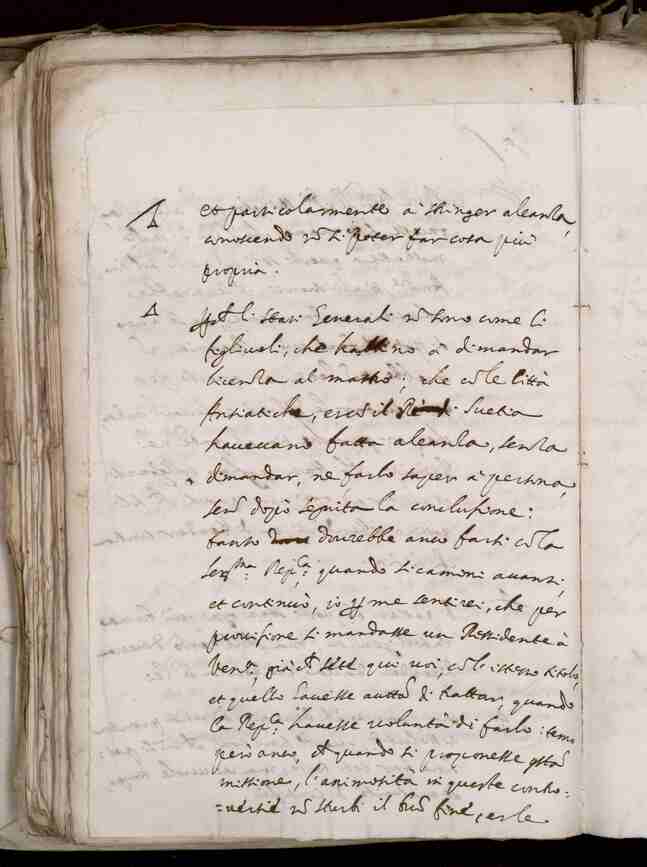 et particolarmente à stringer aleanza,
conoscendo nõ si poter far cosa più
propria.
li Stati Generali nõ sono come li
figliuoli, che habbino à dimandar
licenza al mastro; che cõ le Città
Ansiatiche, et cõ il Rè di Suetia
havevano fatta aleanza, senza
dimandar, ne farlo saper à persona,
senõ dopò seguita la conclusione:
tanto dovrebbe anco farsi cõ la
Ser.ma Rep.ca quando si camini avanti,
et continuò, io me sentirei, che per
provisione si mandasse un Ressidente à
Ven.a, già qui voi, cõ l'istesso titolo,
et quello havesse autt.à di trattar, quando
la Rep.ca havesse volontà di farlo: temo
però anco, quando si proponesse
missione, l'animosità in queste contro=
=versie nõ sturbi il buõ fine, et le